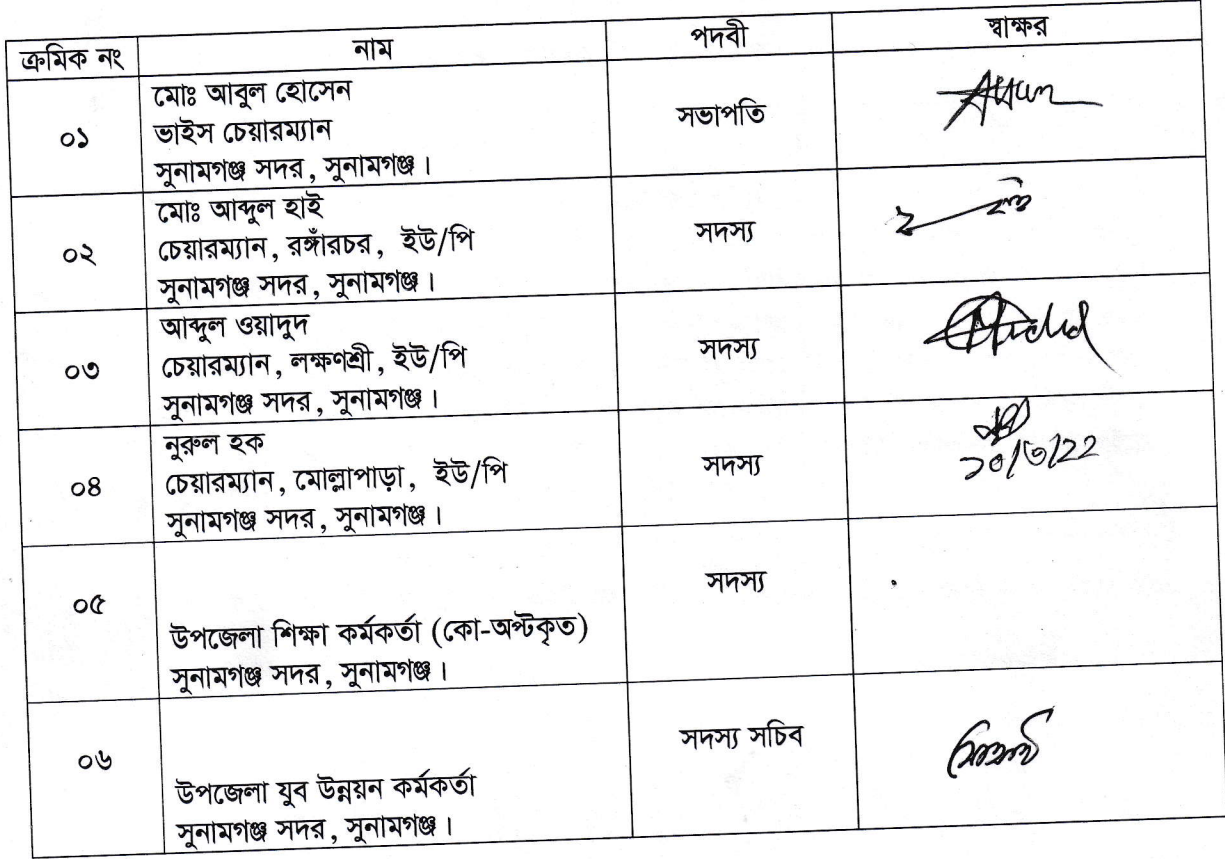 ক্রমিক নং নাম পদবী স্বাক্ষর
০১ মোঃ আবুল হোসেন
ভাইস চেয়ারম্যান
সুনামগঞ্জ সদর, সুনামগঞ্জ। সভাপতি
০২ মোঃ আব্দুল হাই
চেয়ারম্যান, রঙ্গাঁরচর, ইউ/পি
সুনামগঞ্জ সদর, সুনামগঞ্জ। সদস্য
০৩ আব্দুল ওয়াদুদ
চেয়ারম্যান, লক্ষণশ্রী, ইউ/পি
সুনামগঞ্জ সদর, সুনামগঞ্জ। সদস্য
০৪ নুরুল হক
চেয়ারম্যান, মোল্লাপাড়া, ইউ/পি
সুনামগঞ্জ সদর, সুনামগঞ্জ। সদস্য
০৫ উপজেলা শিক্ষা কর্মকর্তা (কো-অপ্টকৃত)
সুনামগঞ্জ সদর, সুনামগঞ্জ। সদস্য
০৬ উপজেলা যুব উন্নয়ন কর্মকর্তা
সুনামগঞ্জ সদর, সুনামগঞ্জ। সদস্য সচিব